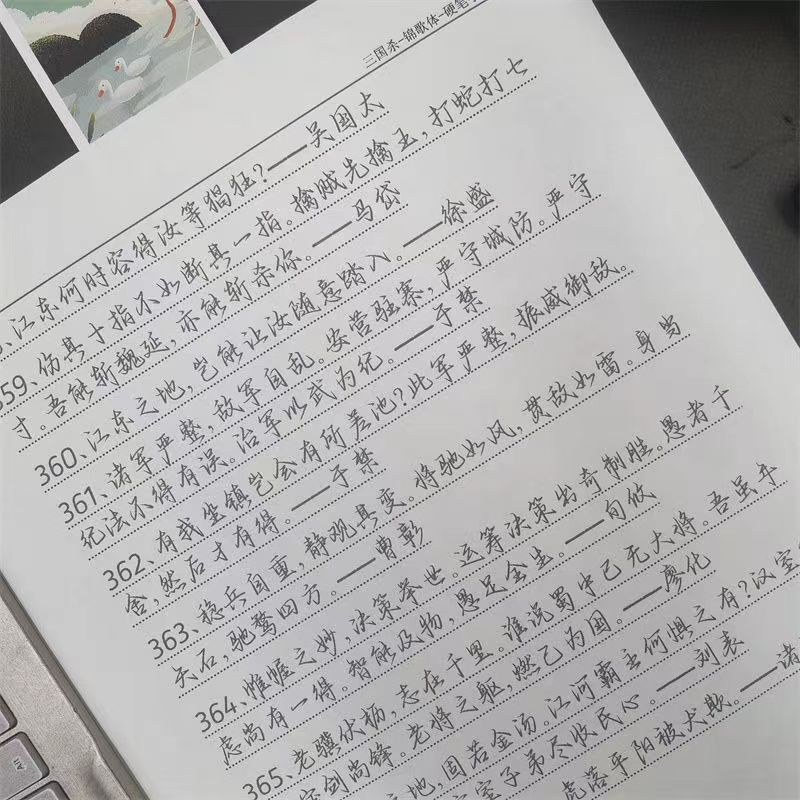 三国杀-锦歌体-硬笔
、江东何时容得汝等猖狂?——吴国太
359、伤其十指不如断其一指。擒贼先擒王,打蛇打七
寸。吾能斩魏延,亦能斩杀你。——马岱
360、江东之地,岂能让汝随意踏入。——徐盛
361、诸军严整,敌军自乱。安营驻寨,严守城防。严守
纪法不得有误。治军以武为纪。——于禁
362、有我坐镇岂会有所差池?此军严整,振威御敌。
舍,然后才有得。——于禁
363、稳兵自重,静观其变。将驰如风,贯敌如雷。身当
矢石,驰骛四方。——曹彰
364、帷幄之妙,决策举世。运筹决策出奇制胜。愚者千
虑尚有一得。智能及物,愚足全生。——荀攸
365、老骥伏枥,志在千里。谁说蜀中已无大将。吾虽年
宝剑尚锋。老将之躯,燃己为国。——廖化
之地,固若金汤,江河霸主何惧之有?汉室
室子弟尽收民心。——刘表
虎落平阳被犬欺。——诸
Alt